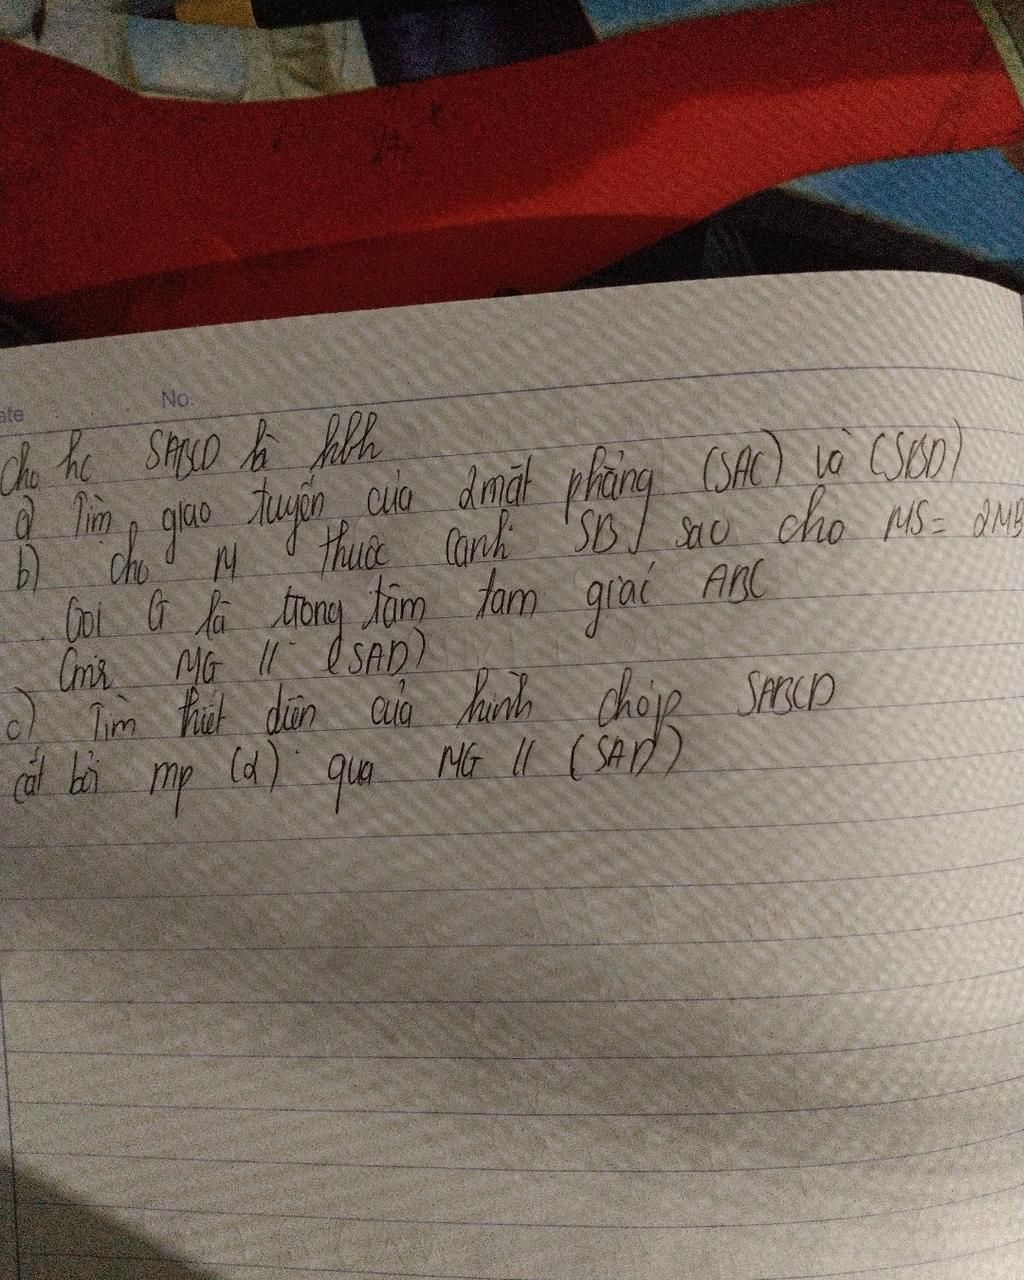 ate No.
Cho hc SABCD là hbh
a) Tìm giao tuyến của 2 mặt phẳng (SAC) và (SBD)
b) cho M thuộc cạnh SB sao cho MS = 2MB
Gọi G là trọng tâm tam giác ABC
Cmr MG // (SAD)
c) Tìm thiết diện của hình chóp SABCD
cắt bởi mp (α) qua MG // (SAD)